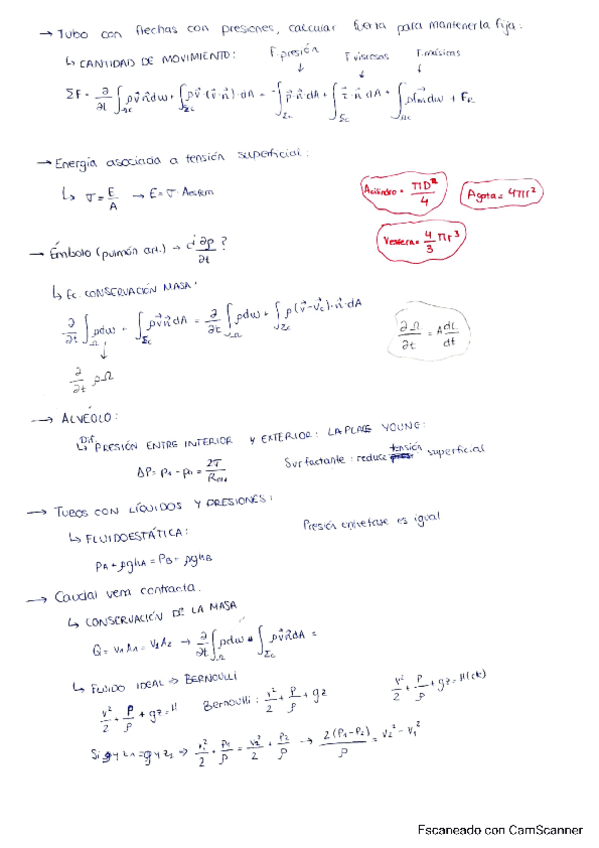 → Tubo con flechas con presiones, calcular fuerza para mantenerla fija:
↳ CANTIDAD DE MOVIMIENTO: F. presión F. viscosas F. másicas
ΣF = ∂/∂t ∫Ωc ρv⃗n⃗dω + ∫Σc ρv⃗·(v⃗·n⃗)·dA = -∫Σc p·n⃗·dA + ∫Σc τ·n⃗·dA + ∫Ωc ρfmdω + FR
→ Energía asociada a tensión superficial:
↳ σ = E/A → E = σ·Aesfera
Acilindro = πD²/4 Agota = 4πr²
Vesfera = 4/3 πr³
→ Émbolo (pulmón art.) → ¿ ∂ρ/∂t ?
↳ Ec. CONSERVACIÓN MASA:
∂/∂t ∫Ω ρdω + ∫Σc ρv⃗n⃗dA = ∂/∂t ∫Ω ρdω + ∫Σc ρ(v⃗-v⃗c)·n⃗·dA
∂Ω/∂t = A dL/dt
∂/∂t ρΩ
→ ALVÉOLO:
↳ Dif. PRESIÓN ENTRE INTERIOR Y EXTERIOR: LAPLACE YOUNG:
Surfactante: reduce tensión superficial
→ TUBOS CON LÍQUIDOS Y PRESIONES:
Presión entrefase es igual
↳ FLUIDOESTÁTICA:
PA + ρghA = PB + ρghB
→ Caudal vena contracta.
↳ CONSERVACIÓN DE LA MASA
Q = v1A1 = v2A2 → ∂/∂t ∫Ω ρdω + ∫Σc ρv⃗n⃗dA =
↳ FLUIDO IDEAL ⇒ BERNOULLI
v²/2 + P/ρ + gz = H Bernoulli: v²/2 + P/ρ + gz v²/2 + P/ρ + gz = H (ctc)
Si gyz1 = gyz2 ⇒ v1²/2 + P1/ρ = v2²/2 + P2/ρ → 2(P1-P2)/ρ = v2² - v1²
Escaneado con CamScanner